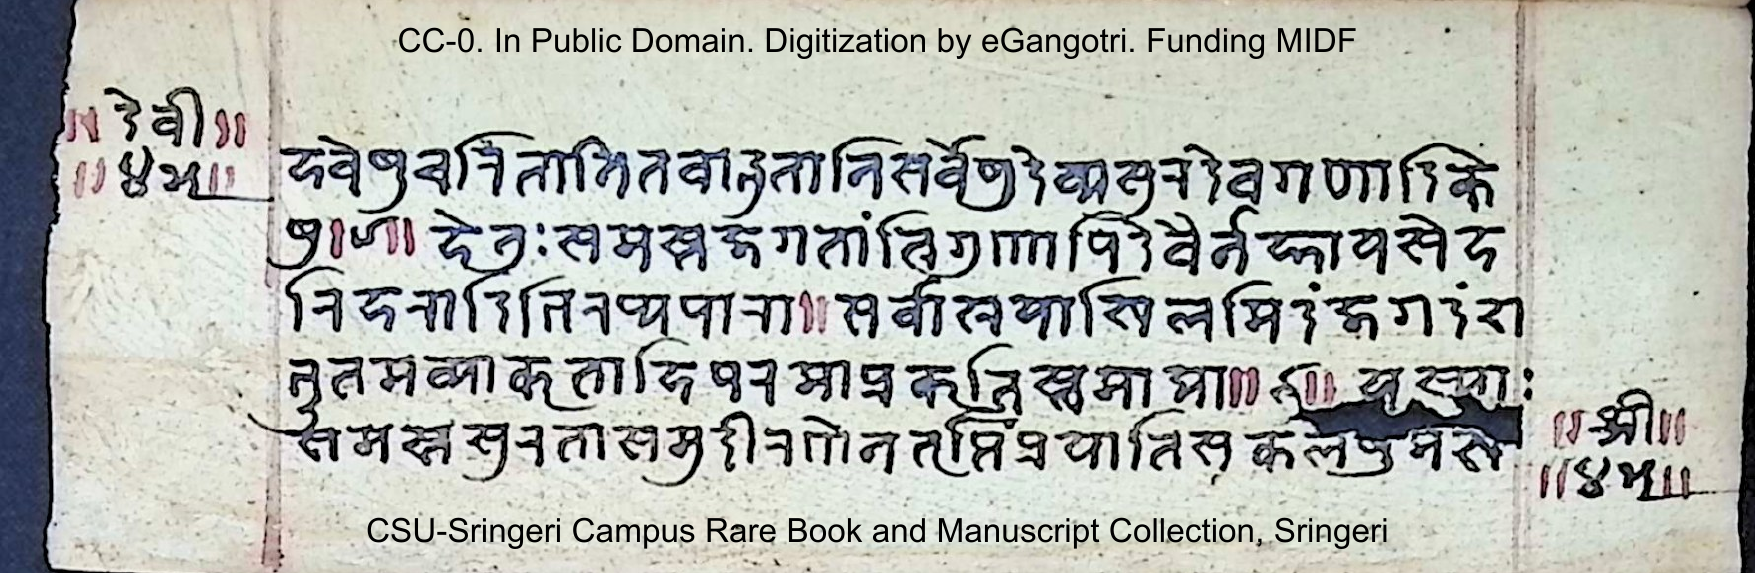 CC-0. In Public Domain. Digitization by eGangotri. Funding MIDF
॥ देवी ॥
॥ ४म ॥
हवेषुचरितानितवाद्भुतानिसर्वेषुदेव्यसुरदेवगणादिके
षु॥ हेतुःसमस्तजगतांत्रिगुणापिदोषैर्नज्ञायसेह
रिहरादिभिरप्यपारा॥सर्वाश्रयाखिलमिदंजगदंशभू
तमव्याकृताहिपरमाप्रकृतिस्त्वमाद्या॥ यस्याः
समस्तसुरतासमुदीरणेनतृप्तिंप्रयातिसकलेषुमखे
॥ श्री ॥
॥ ४म ॥
CSU-Sringeri Campus Rare Book and Manuscript Collection, Sringeri